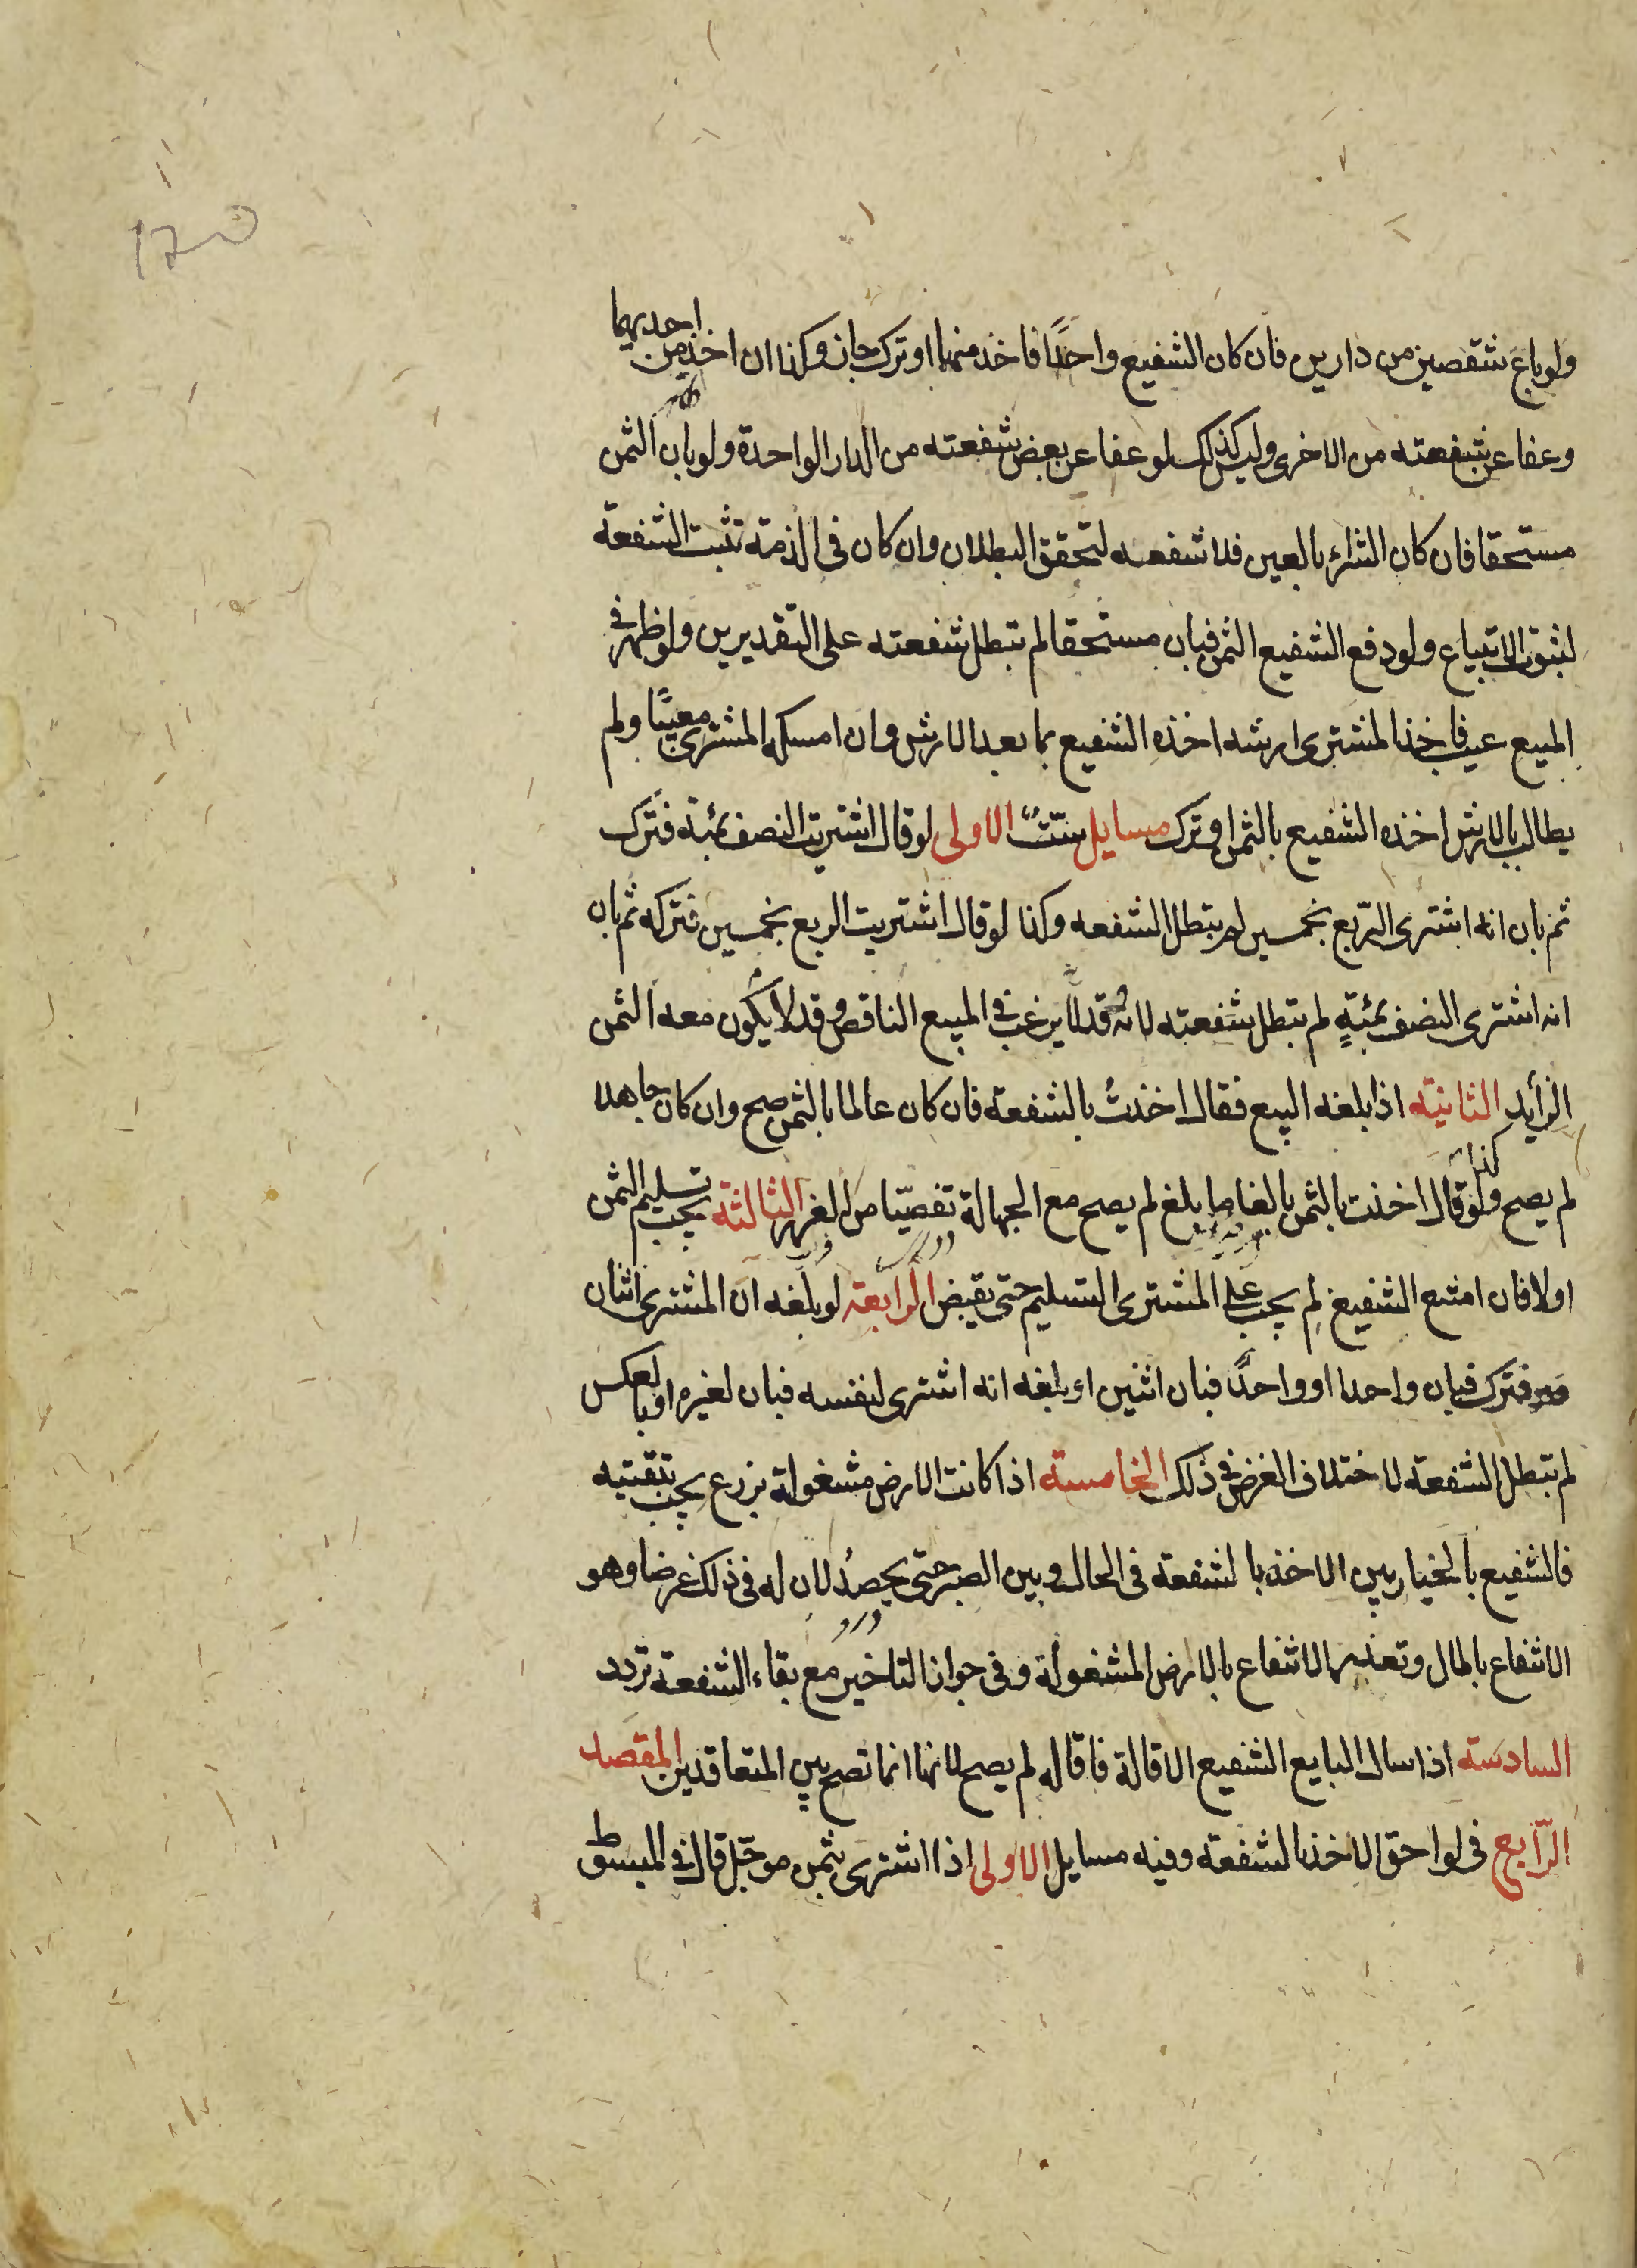 ولو باع شقصين من دارين فان كان الشفيع واحدًا فاخذ منهما او ترك جاز وكذا ان اخذ من احديهما
وعفا عن شفعته من الاخرى وليس كذلك لو عفا عن بعض شفعته من الدار الواحدة ولو بان الثمن
مستحقا فان كان الشراء بالعين فلا شفعه لتحقق البطلان وان كان فى الذمة تثبت الشفعة
لثبوت الابتياع ولو دفع الشفيع الثمن فبان مستحقا لم تبطل شفعته على التقديرين ولو ظهر فى
المبيع عيب فاخذ المشترى ارشه اخذه الشفيع بما بعد الارش وان امسكه المشترى معيبًا ولم
يطالب بالارش اخذه الشفيع بالثمن او ترك مسايل ستٌّ الاولى لو قال اشتريت النصف بمئة فترك
ثم بان انه اشترى الرّبع بخمسين لم تبطل الشفعه وكذا لو قال اشتريت الربع بخمسين فتركه ثم بان
انه اشترى النصف بمئةٍ لم تبطل شفعته لانه قد لا يرغب فى المبيع الناقص وقد لا يكون معه الثمن
الزايد الثانية اذا بلغه البيع فقال اخذتُ بالشفعة فان كان عالما بالثمن صح وان كان جاهلا
لم يصح وكذا لو قال اخذت بالثمن بالغا ما بلغ لم يصح مع الجهالة تفصّيًا من الغرر الثالثة يجب تسليم الثمن
اولا فان امتنع الشفيع لم يجب على المشترى التسليم حتى يقبض الرابعة لو بلغه ان المشترى اثنان
فترك فبان واحدا او واحدًا فبان اثنين او بلغه انه اشترى لنفسه فبان لغيره او بالعكس
لم تبطل الشفعة لاختلاف الغرض فى ذلك الخامسة اذا كانت الارض مشغولة بزرع يجب تبقيته
فالشفيع بالخيار بين الاخذ بالشفعة فى الحال وبين الصبر حتى يحصدُ لان له فى ذلك غرضا وهو
الانتفاع بالمال وتعذر الانتفاع بالارض المشغولة وفى جواز التاخير مع بقاء الشفعة تردد
السادسة اذا سال البايع الشفيع الاقالة فاقاله لم يصح لانها انما تصح بين المتعاقدين المقصد
الرّابع فى لواحق الاخذ بالشفعة وفيه مسايل الاولى اذا اشترى بثمن موجّل قال فى المبسوط